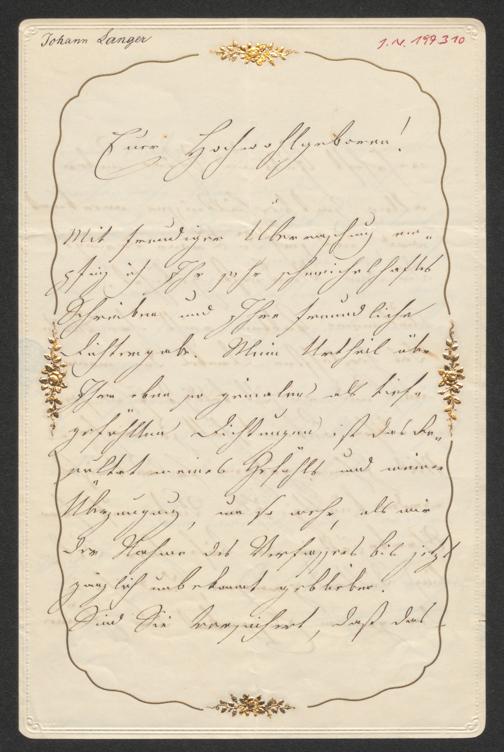 Johann Langer
J.N. 197310
Euer Hochwohlgeboren!
Mit freudiger Überraschung em-
pfing ich Ihr sehr schmeichelhaftes
Schreiben und Ihre freundliche
Dichtergabe. Mein Urtheil über
Ihre eben so genialen als tief-
gefühlten Dichtungen ist das Re-
sultat meines Gefühls und meiner
Überzeugung, um so mehr, als mir
der Nahme des Verfassers bis jetzt
gänzlich unbekannt geblieben.
Sind Sie versichert, daß das